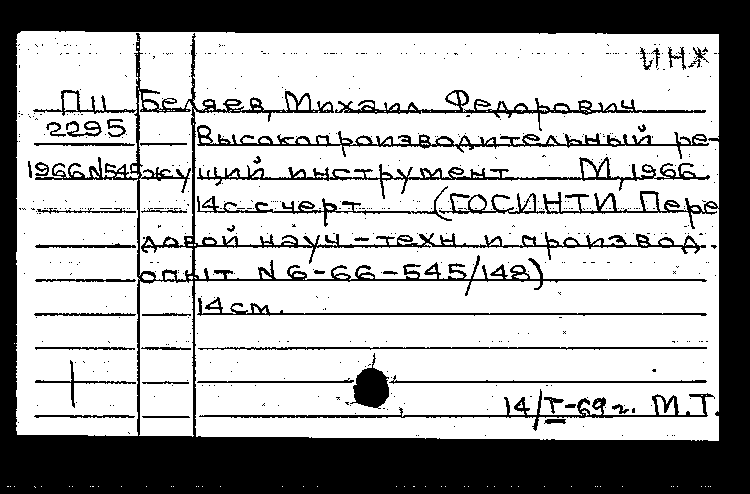 ИНЖ
П11 Беляев, Михаил Федорович
2295 Высокопроизводительный ре-
1966 N545 жущий инструмент М, 1966
14с с черт (ГОСИНТИ Пере
довой науч-техн. и производ.
опыт N6-66-545/148)
14 см.
14/I-69 г. М.Т.